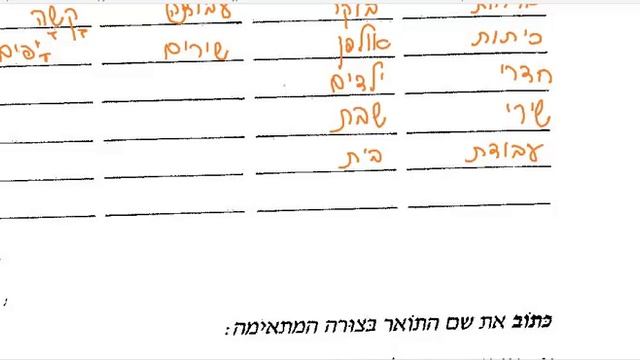 בוקר עבודה קשה
כיתות אולפן שירים יפים
חדרי ילדים
שירי שבת
עבודת בית
כתוב את שם התואר בצורה המתאימה: